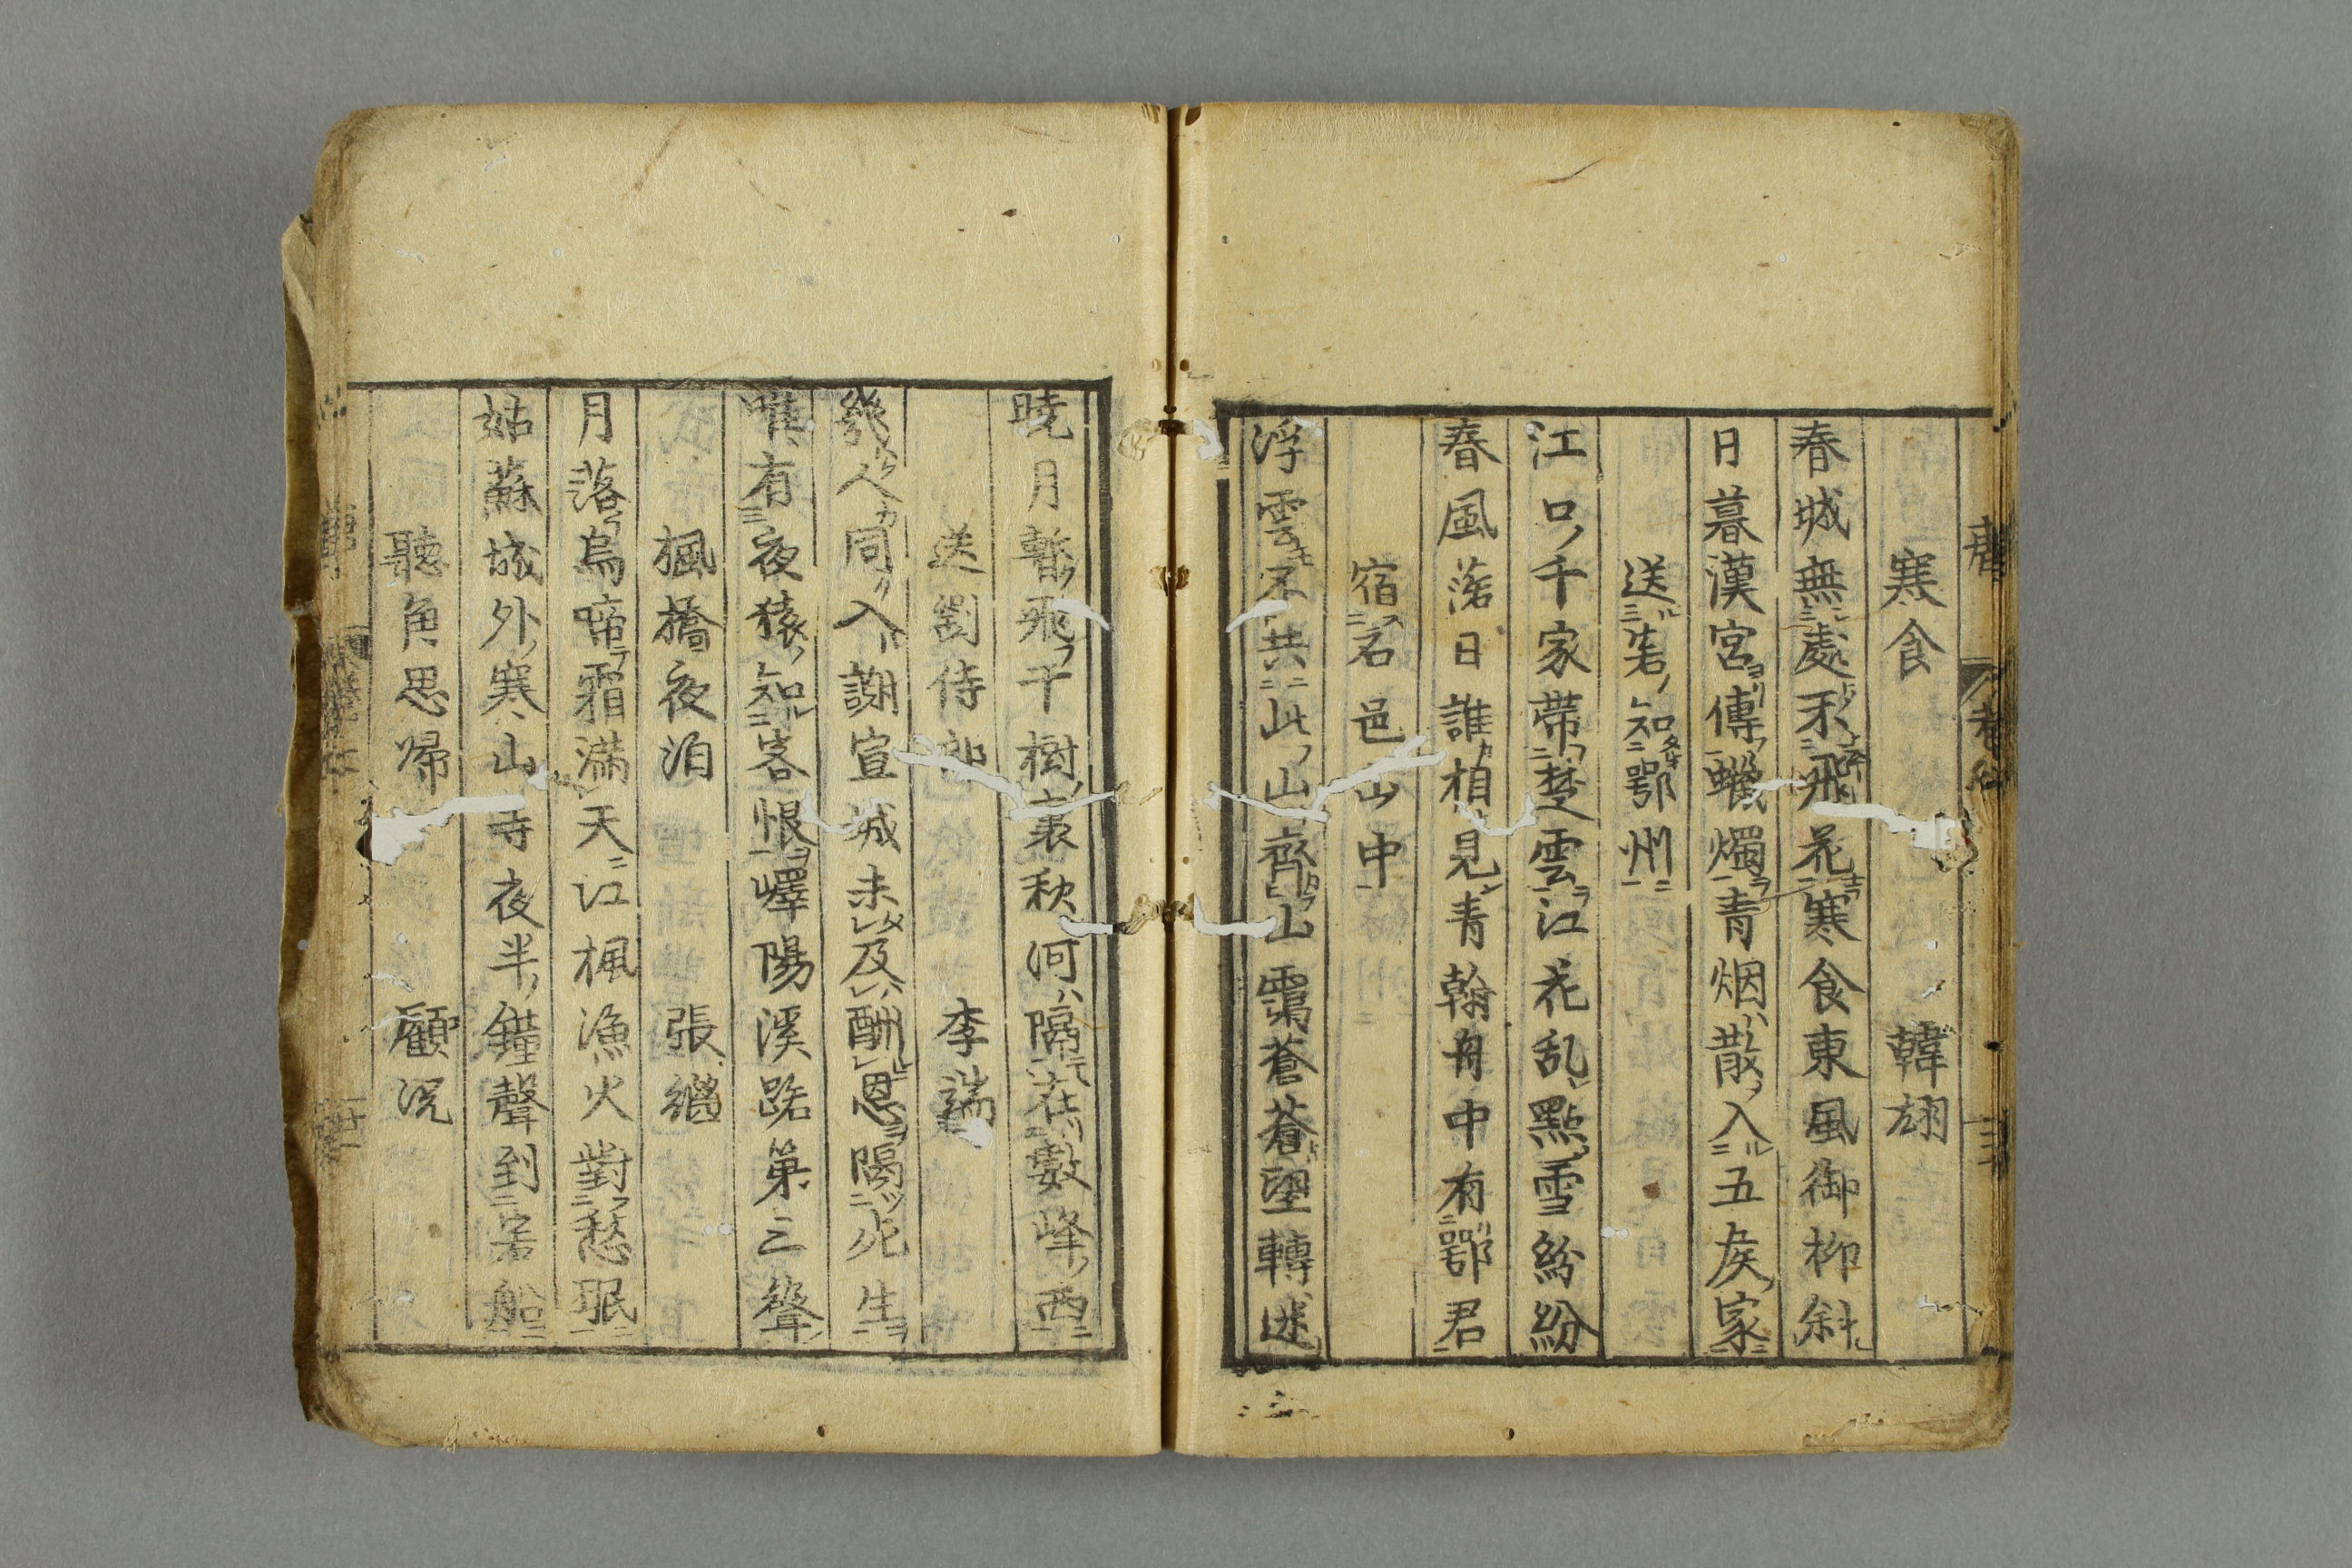 寒食 韓翃
春城無處不飛花寒食東風御柳斜
日暮漢宮傳蠟燭青烟散入五矦家
送客知鄂州
江口千家帶楚雲江花乱點雪紛紛
春風落日誰相見青翰舟中有鄂君
宿石邑山中
浮雲不共此山齊山靄蒼蒼望轉迷
曉月暫飛千樹裏秋河隔在數峰西
送劉侍郎 李端
幾人同入謝宣城未及酬恩隔死生
唯有夜猿知客恨嶧陽溪路第三聲
楓橋夜泊 張繼
月落烏啼霜滿天江楓漁火對愁眠
姑蘇城外寒山寺夜半鐘聲到客船
聽角思歸 顧況